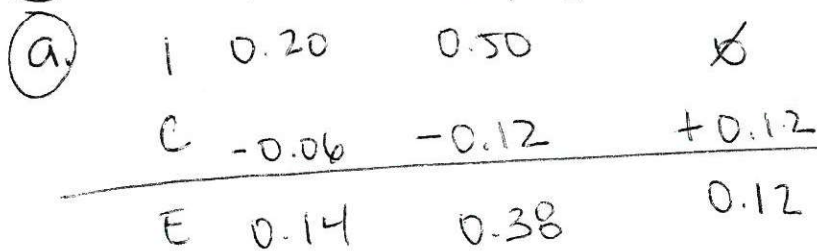 a. I 0.20 0.50 Ø
C -0.06 -0.12 +0.12
E 0.14 0.38 0.12